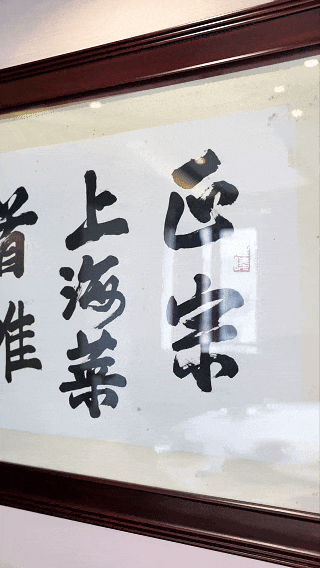 正宗
上海菜
首推